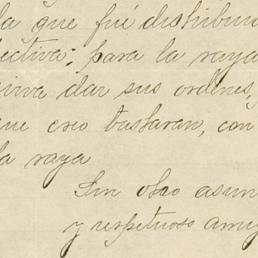 la que fué distribui
ectiva; para la raya
sirva dar sus ordenes,
que creo bastaran, con
la raya
Sin otro asun
y respetuoso ami